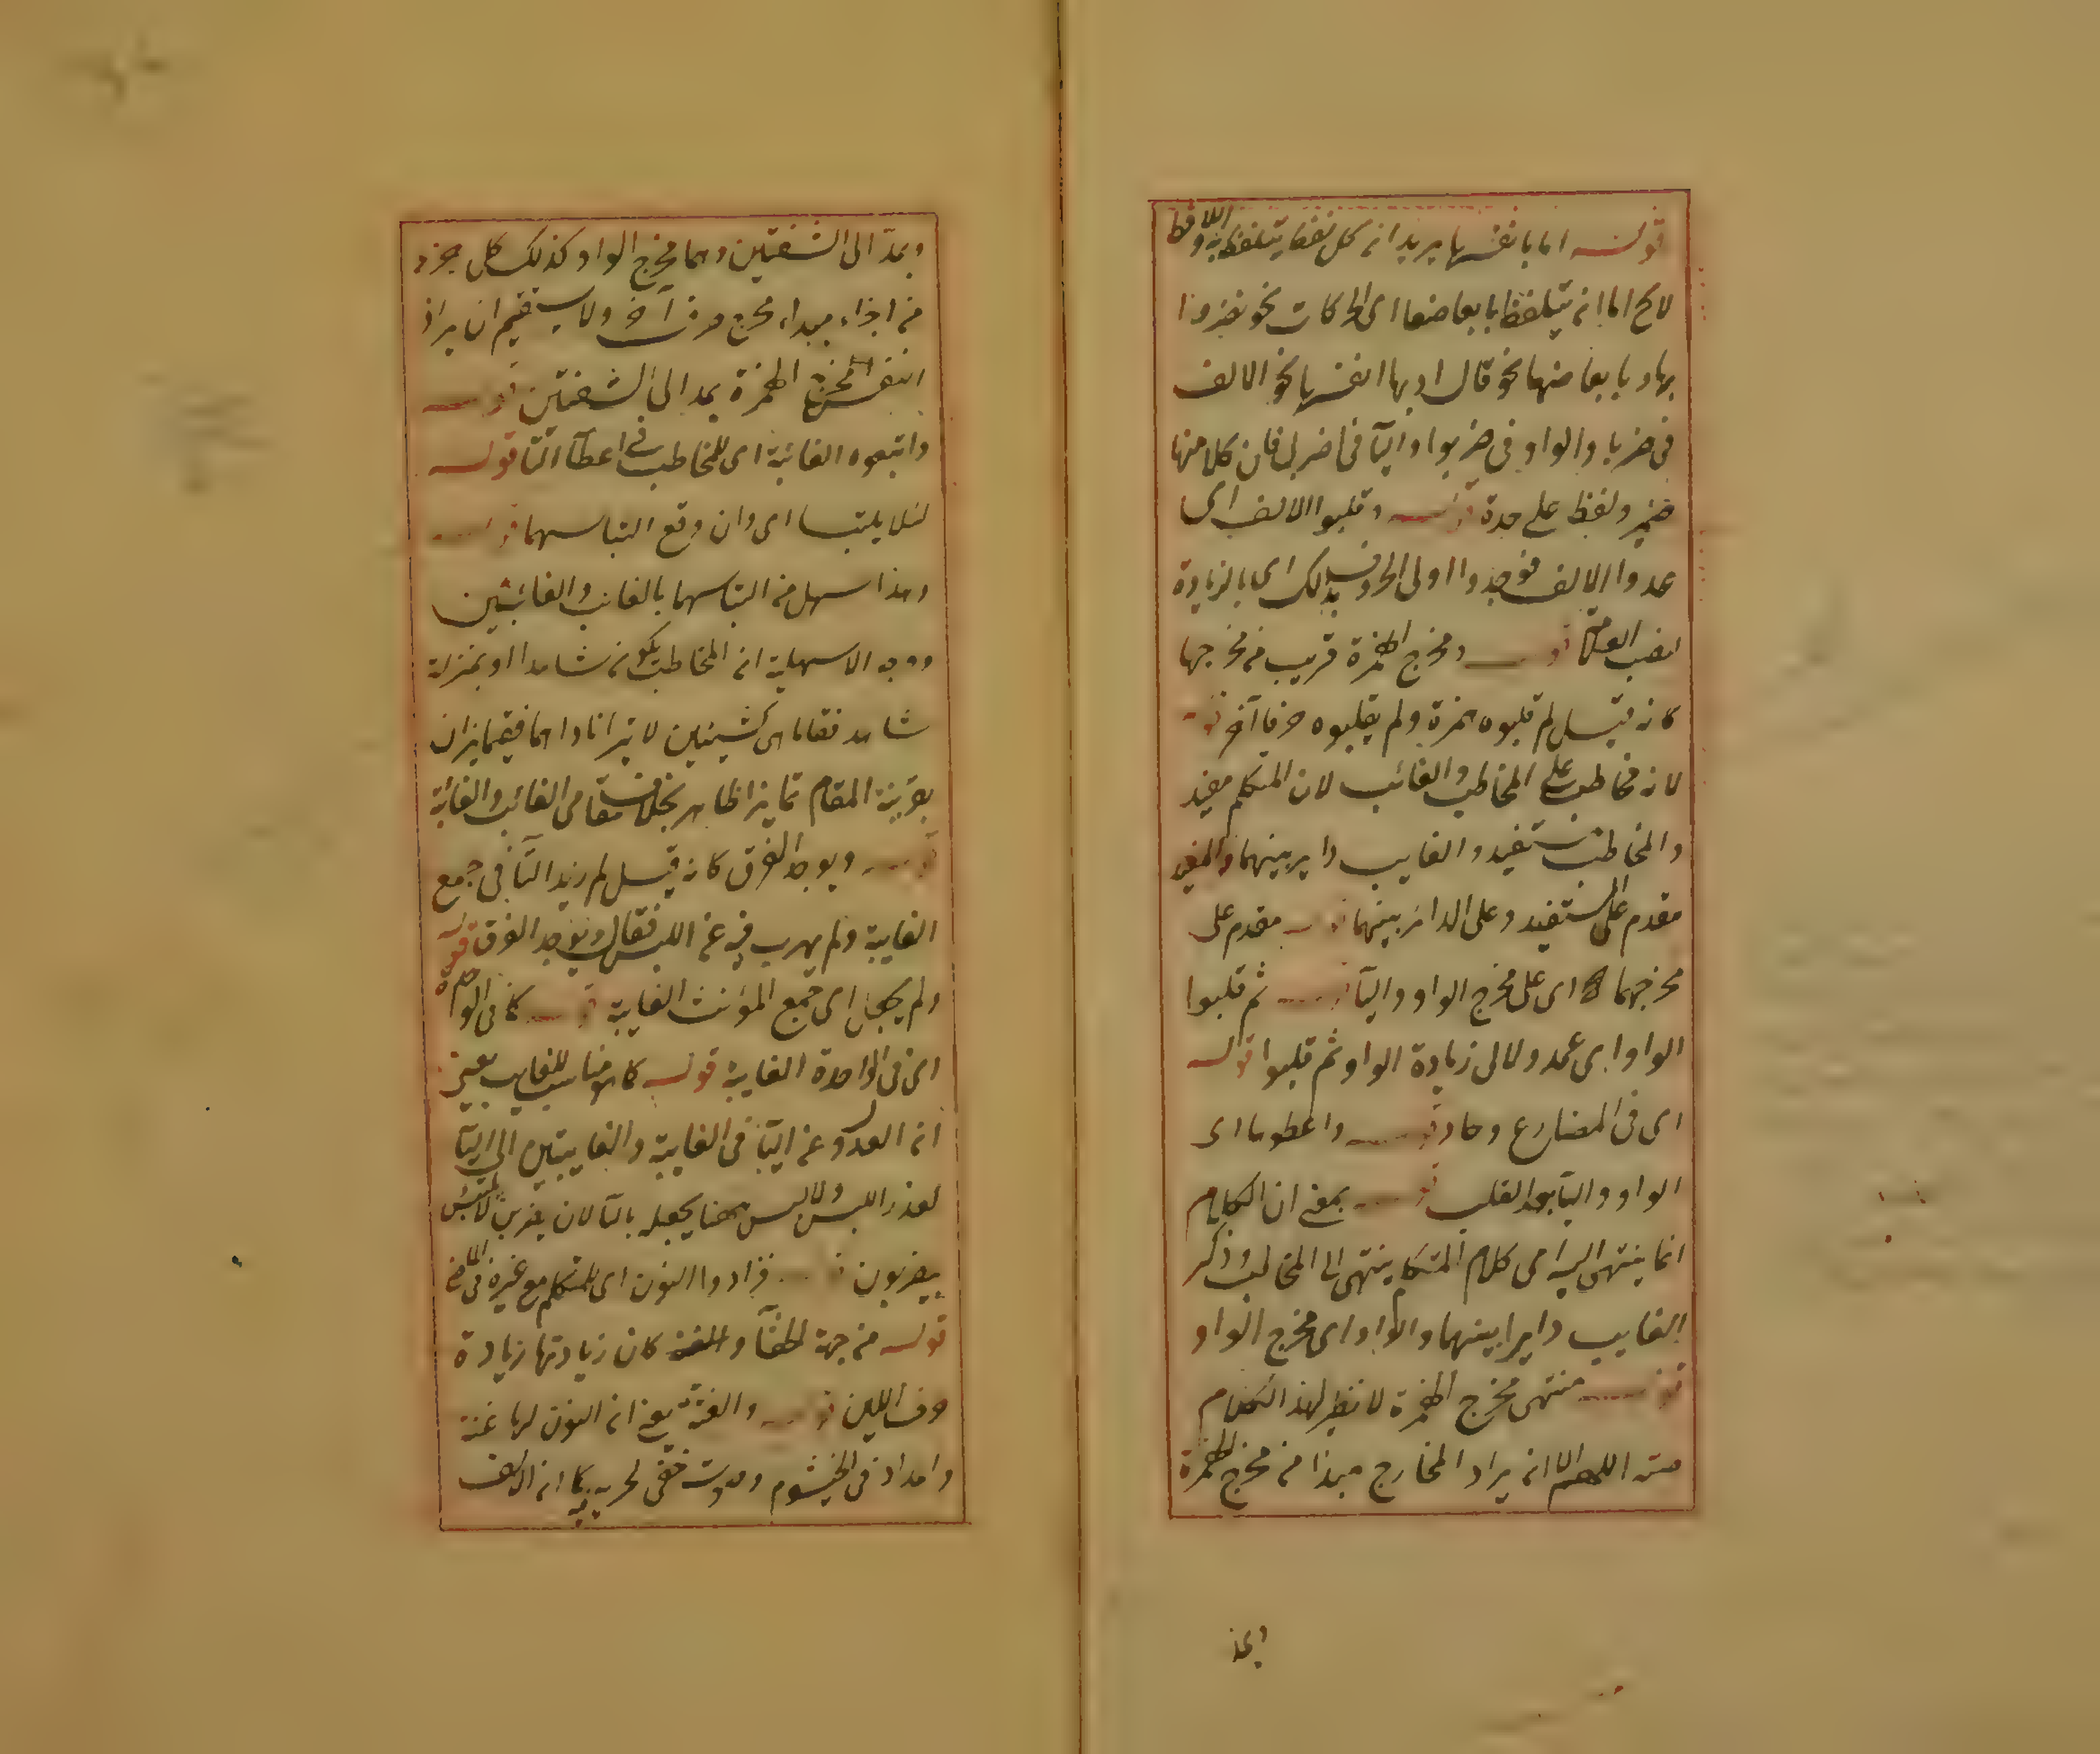 قوله اما بانفسها يريد انه كل لفظ يتلفظ به اللافظ
لا يخ اما انه يتلفظ بابعاضها اى الحركات نحو نفروا
بها و بابعاضها نحو قال او بها انفسها نحو الالف
فى ضربا والواو فى ضربوا واليآ فى اضربى فان كلا منها
ضمير ولفظ على حدة قوله وقلبوا الالف اى
عدوا الالف فوجدوا اولى الحروف بذلك اى بالزيادة
قوله ومخرج الهمزة قريب من مخرجها
كانه قيل لم قلبوه همزة ولم يقلبوه حرفا آخر قوله
لانه مخاطب على المخاطب والغائب لان المتكلم مفيد
والمخاطب مستفيد والغايب داير بينهما والمفيد
مقدم على المستفيد وعلى الدائر بينهما قوله مقدم على
مخرجهما اى على مخرج الواو واليآ قوله ثم قلبوا
الواو اى عمدوا الى زيادة الواو ثم قلبوا قوله
اى فى المضارع وحاد قوله واعطوها اى
الواو واليآ بعد القلب قوله بمعنى ان الكلام
انما ينتهى اليه اى كلام المتكلم ينتهى الى المخاطب وذكر
الغايب دايرا بينهما والواو اى مخرج الواو
قوله منتهى مخرج الهمزة لا نظير لهذا الكلام
منه اللهم الا انه يراد المخارج مبدا من مخرج الهمزة
ويمد
ويمد الى الشفتين وهما مخرج الواو كذلك كل جزء
من اجزاء مبداء مخرج حرف آخر ولا يستقيم ان يراد
انفس مخرج الهمزة يمد الى الشفتين قوله
واتبعوه الغائبة اى للمخاطب فى اعطآ التا قوله
لئلا يلتبسا اى وان وقع التباسهما قوله
وهذا سهل من التباسهما بالغائب والغائبتين
ووجه الاسهلية انه المخاطب يكون شاهدا او بمنزلة
شاهد فقاما اى كشيئين لا يتمايزان
بقرينة المقام تمايزا ظاهرا بخلاف مقامى الغائب والغائبة
قوله ويوجد الفرق كانه قيل لم زيد اليآ فى جمع
الغايبة ولم يهرب فيه عن اللبس فقال ويوجد الفرق قوله
ولم يجعل اى جمع المؤنث الغايبة قوله كما فى الواحدة
اى فى الواحدة الغايبة قوله كالمناسب للغايب يعنى
انه العدول عن اليآ فى الغايبة والغايبتين الى التآ
لعذر اللبس ولا لبس ههنا يجعله باليآ لان يضربن لا يلتبس
بيضربون قوله فزادوا النون اى للمتكلم مع غيره فى الماضى
قوله من جهة الخفآ والغنة كان زيادتها زيادة
حرف اللين قوله والغنة يعنى انه النون لها غنة
وامداد فى الخيشوم وصوت خفى لجريه فيه كما انه الالف